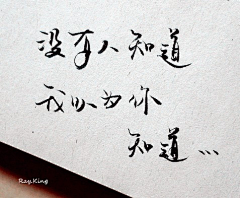 没有人知道
我以为你
知道...
Ray.King